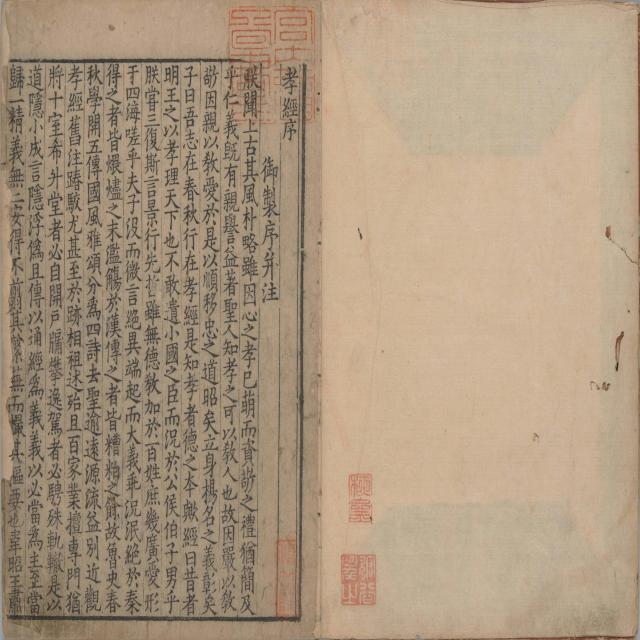 孝經序
御製序并注
朕聞上古其風朴略雖因心之孝已萌而資敬之禮猶簡及
乎仁義既有親譽益著聖人知孝之可以教人也故因嚴以教
敬因親以教愛於是以順移忠之道昭矣立身揚名之義彰矣
子曰吾志在春秋行在孝經是知孝者德之本歟經曰昔者
明王之以孝理天下也不敢遺小國之臣而況於公侯伯子男乎
朕嘗三復斯言景行先哲雖無德教加於百姓庶幾廣愛形
于四海嗟乎夫子沒而微言絕異端起而大義乖況泯絕於秦
得之者皆煨燼之末濫觴於漢傳之者皆糟粕之餘故魯史春
秋學開五傳國風雅頌分為四詩去聖逾遠源流益別近觀
孝經舊注踳駮尤甚至於跡相祖述殆且百家業擅專門猶
將十室希升堂者必自開戶牖攀逸駕者必騁殊軌轍是以
道隱小成言隱浮偽且傳以通經為義義以必當為主至當
歸一精義無二安得不翦其繁蕪而撮其樞要也韋昭王肅